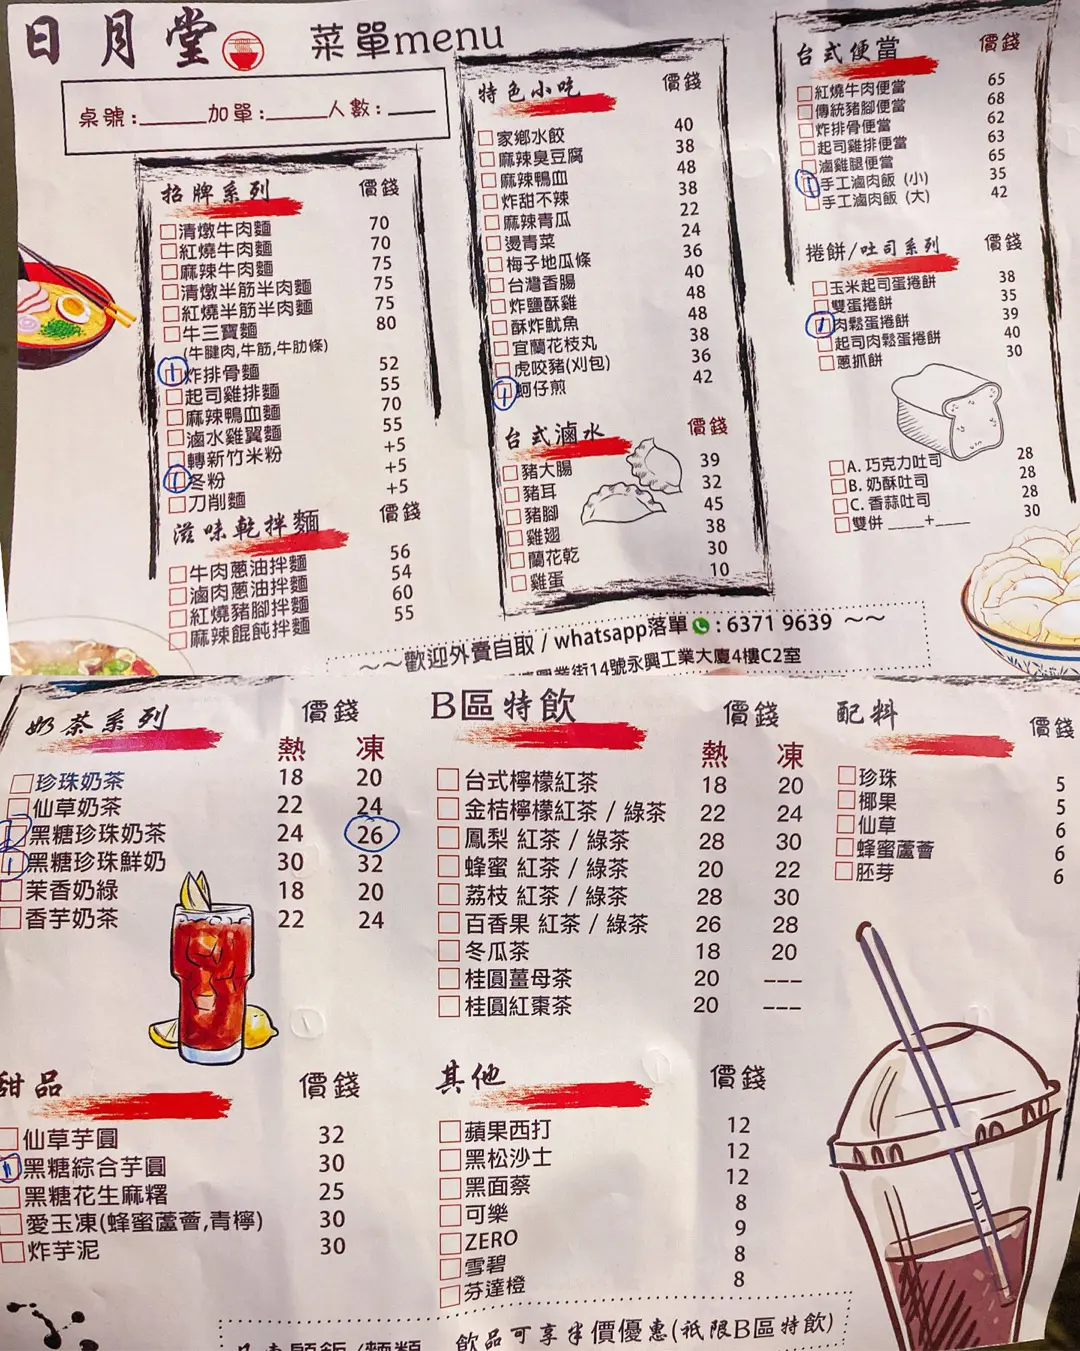 日月堂
菜單menu
桌號:_____加單:_____人數:_____
招牌系列 價錢
清燉牛肉麵 70
紅燒牛肉麵 70
麻辣牛肉麵 75
清燉半筋半肉麵 75
紅燒半筋半肉麵 75
牛三寶麵 80
(牛腱肉,牛筋,牛肋條)
1 炸排骨麵 52
起司雞排麵 55
麻辣鴨血麵 70
滷水雞翼麵 55
轉新竹米粉 +5
1 冬粉 +5
刀削麵 +5
滋味乾拌麵 價錢
牛肉蔥油拌麵 56
滷肉蔥油拌麵 54
紅燒豬腳拌麵 60
麻辣餛飩拌麵 55
特色小吃 價錢
家鄉水餃 40
麻辣臭豆腐 38
麻辣鴨血 48
炸甜不辣 38
麻辣青瓜 22
燙青菜 24
梅子地瓜條 36
台灣香腸 40
炸鹽酥雞 48
酥炸魷魚 48
宜蘭花枝丸 38
虎咬豬(刈包) 36
1 蚵仔煎 42
台式滷水 價錢
豬大腸 39
豬耳 32
豬腳 45
雞翅 38
蘭花乾 30
雞蛋 10
台式便當 價錢
紅燒牛肉便當 65
傳統豬腳便當 68
炸排骨便當 62
起司雞排便當 63
滷雞腿便當 65
1 手工滷肉飯 (小) 35
手工滷肉飯 (大) 42
捲餅/吐司系列 價錢
玉米起司蛋捲餅 38
雙蛋捲餅 35
1 肉鬆蛋捲餅 39
起司肉鬆蛋捲餅 40
蔥抓餅 30
A. 巧克力吐司 28
B. 奶酥吐司 28
C. 香蒜吐司 28
雙併 ____+____ 30
~~歡迎外賣自取 / whatsapp落單 : 6371 9639 ~~
業街14號永興工業大廈4樓C2室
奶茶系列 價錢
熱 凍
珍珠奶茶 18 20
仙草奶茶 22 24
1 黑糖珍珠奶茶 24 26
1 黑糖珍珠鮮奶 30 32
茉香奶綠 18 20
香芋奶茶 22 24
B區特飲 價錢
熱 凍
台式檸檬紅茶 18 20
金桔檸檬紅茶 / 綠茶 22 24
鳳梨 紅茶 / 綠茶 28 30
蜂蜜 紅茶 / 綠茶 20 22
荔枝 紅茶 / 綠茶 28 30
百香果 紅茶 / 綠茶 26 28
冬瓜茶 18 20
桂圓薑母茶 20 ---
桂圓紅棗茶 20 ---
配料 價錢
珍珠 5
椰果 5
仙草 6
蜂蜜蘆薈 6
胚芽 6
甜品 價錢
仙草芋圓 32
1 黑糖綜合芋圓 30
黑糖花生麻糬 25
愛玉凍(蜂蜜蘆薈,青檸) 30
炸芋泥 30
其他 價錢
蘋果西打 12
黑松沙士 12
黑面蔡 12
可樂 8
ZERO 9
雪碧 8
芬達橙 8
飯/麵類 飲品可享半價優惠(祇限B區特飲)